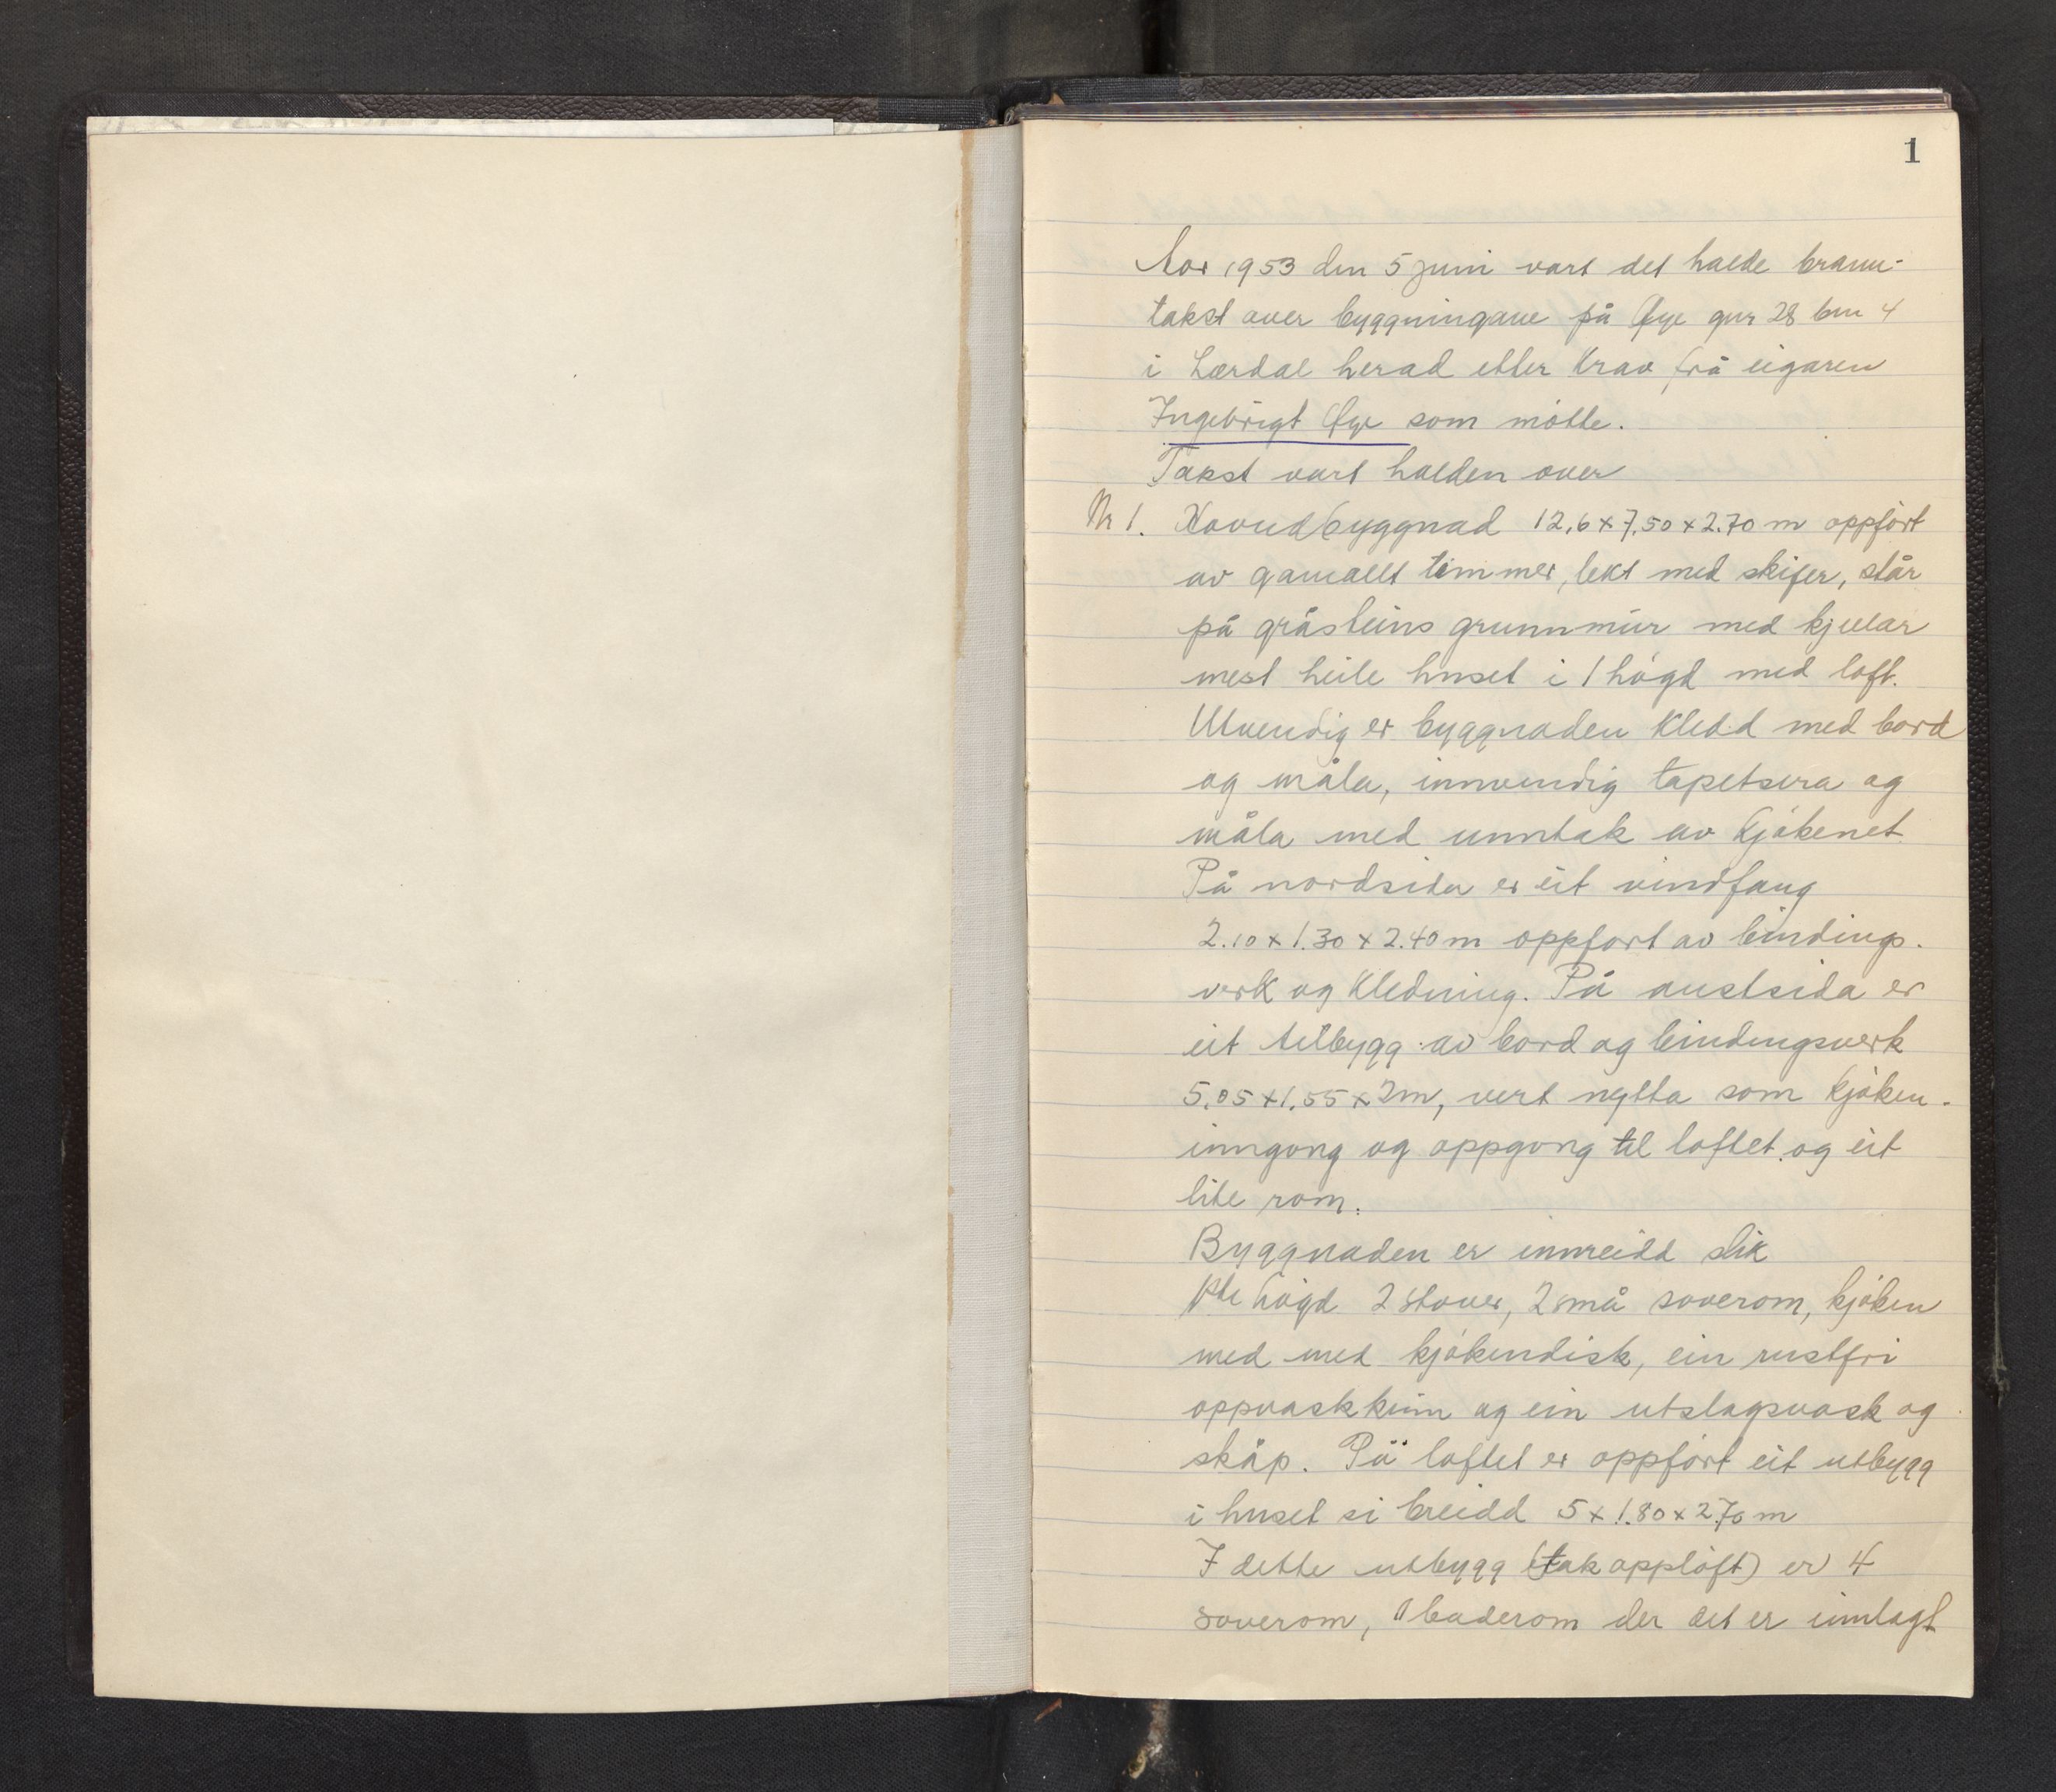 1
Aar 1953 den 5 juni vart det halde brann-
takst over byggningane på Øye gnr 28 bnr 4
i Lærdal herad etter krav frå eigaren
Ingebrigt Øye som møtte.
Takst vart halden over
Nr 1. Hovudbyggnad 12,6 x 7,50 x 2.70 m oppført
av gamallt timmer, tekt med skifer, står
på gråsteins grunnmur med kjellar
mest heile huset i 1 høgd med loft.
Utvendig er byggnaden kledd med bord
og måla, innvendig tapetsera og
måla med unntak av kjøkenet
På nordsida er eit vindfang
2.10 x 1.30 x 2.40 m oppført av bindings-
verk og kledning. På austsida er
eit tilbygg av bord og bindingsverk
5,05 x 1,55 x 2m, vert nytta som kjøken-
inngong og oppgong til loftet og eit
lite rom.
Byggnaden er innreidd slik
1ste høgd 2 stover, 2 små soverom, kjøken
med med kjøkendisk, ein rustfri
oppvaskkum og ein utslagsvask og
skåp. På loftet er oppført eit utbygg
i huset si breidd 5 x 1.80 x 2.70 m
I dette utbygg (takoppløft) er 4
soverom, 1 baderom der det er innlagt